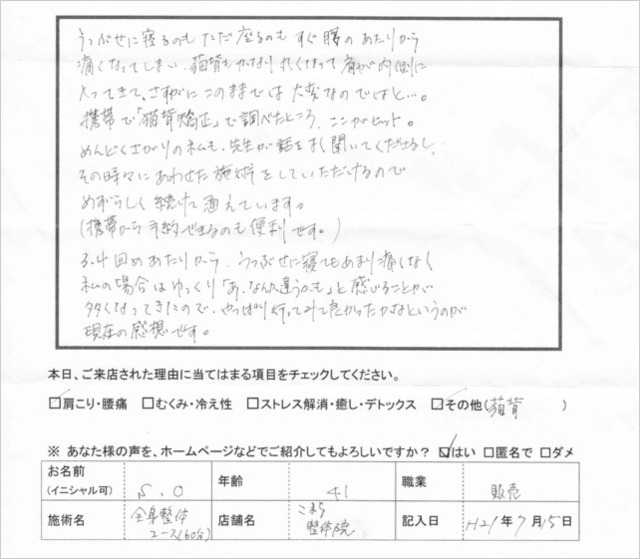 うつぶせに寝るのもただ座るのもすぐ腰のあたりから
痛くなってしまい、猫背もかなりひどくなって肩が内側に
入ってきて、さすがにこのままでは大変なのではと…。
携帯で「猫背矯正」で調べたところ、ここがヒット。
めんどくさがりの私も、先生が話をよく聞いてくださるし、
その時々にあわせた施術をしていただけるので
めずらしく続けて通えています。
(携帯から予約できるのも便利です。)
3.4回めあたりから、うつぶせに寝てもあまり痛くなく
私の場合はゆっくり「あ、なんか違うかも」と感じることが
多くなってきたので、やっぱり行ってみて良かったかなというのが
現在の感想です。
本日、ご来店された理由に当てはまる項目をチェックしてください。
☑肩こり・腰痛 □むくみ・冷え性 □ストレス解消・癒し・デトックス ☑その他(猫背 )
※ あなた様の声を、ホームページなどでご紹介してもよろしいですか？ ☑はい □匿名で □ダメ
お名前(イニシャル可) S.O 年齢 41 職業 販売
施術名 全身整体コース(60分) 店舗名 こまら整体院 記入日 H21年7月15日